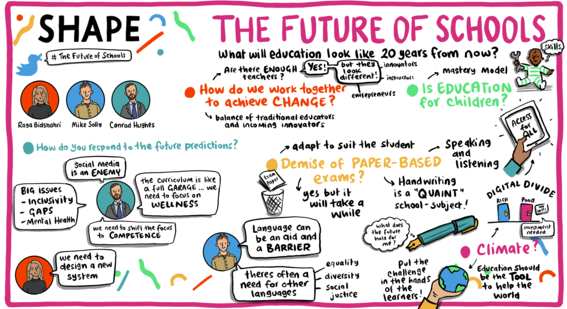 SHAPE
THE FUTURE OF SCHOOLS
# The Future of Schools
What will education look like 20 years from now?
Roya Bidshahri
Mike Saily
Conrad Hughes
Are there ENOUGH
teachers?
YES!
but they
look
different!
innovators
instructors
entrepreneurs
How do we work together
to achieve CHANGE?
balance of traditional educators
and incoming innovators
mastery model
SKILLS
Is EDUCATION
for children?
How do you respond to the future predictions?
Social media
is an ENEMY
BIG issues
- Inclusivity
- GAPS
- Mental Health
the curriculum is like
a full GARAGE ... we
need to focus on
WELLNESS
we need to shift the focus
to COMPETENCE
we need to
design a new
system
adapt to suit the student
Demise of PAPER-BASED
exams?
Exam
Paper
yes but it
will take a
while
Speaking
and
listening
Handwriting
is a "QUAINT"
school-subject!
Access for
ALL
DIGITAL DIVIDE
RICH
POOR
investment
needed
Language can
be an aid and
a BARRIER
theres often a
need for other
languages
equality
diversity
social
justice
what does
the future
hold for
me?
Put the
challenge
in the hands
of the
learners!
Climate?
Education should
be the TOOL
to help the
world